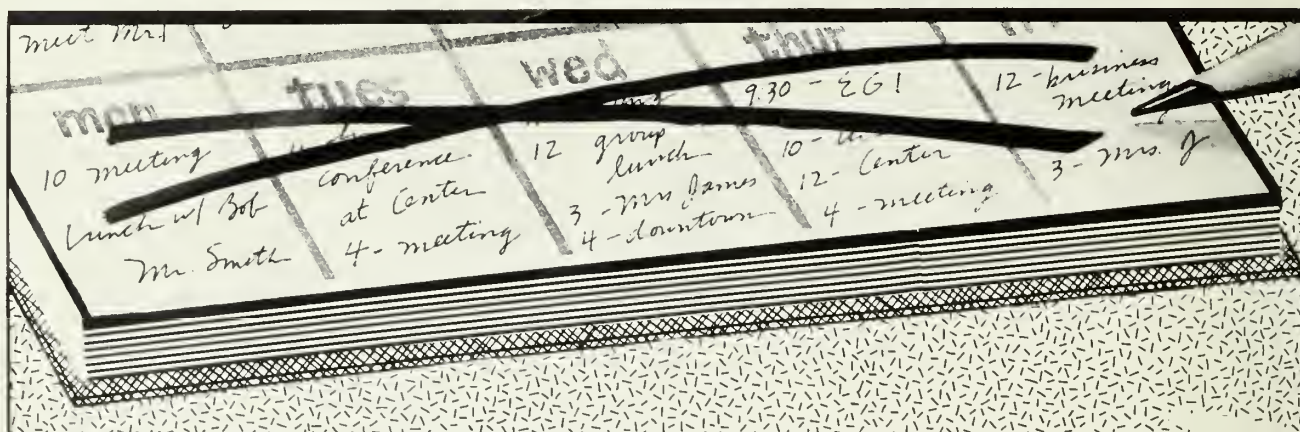 meet Mr.
mon
10 meeting
Lunch w/ Bob
Mr. Smith
tues
conference
at Center
4 - meeting
wed
12 group
lunch
3 - Mrs James
4 - downtown
thur
9:30 - EG1
10 -
12 - Center
4 - meeting
12 - business
meeting
3 - Mrs. J.